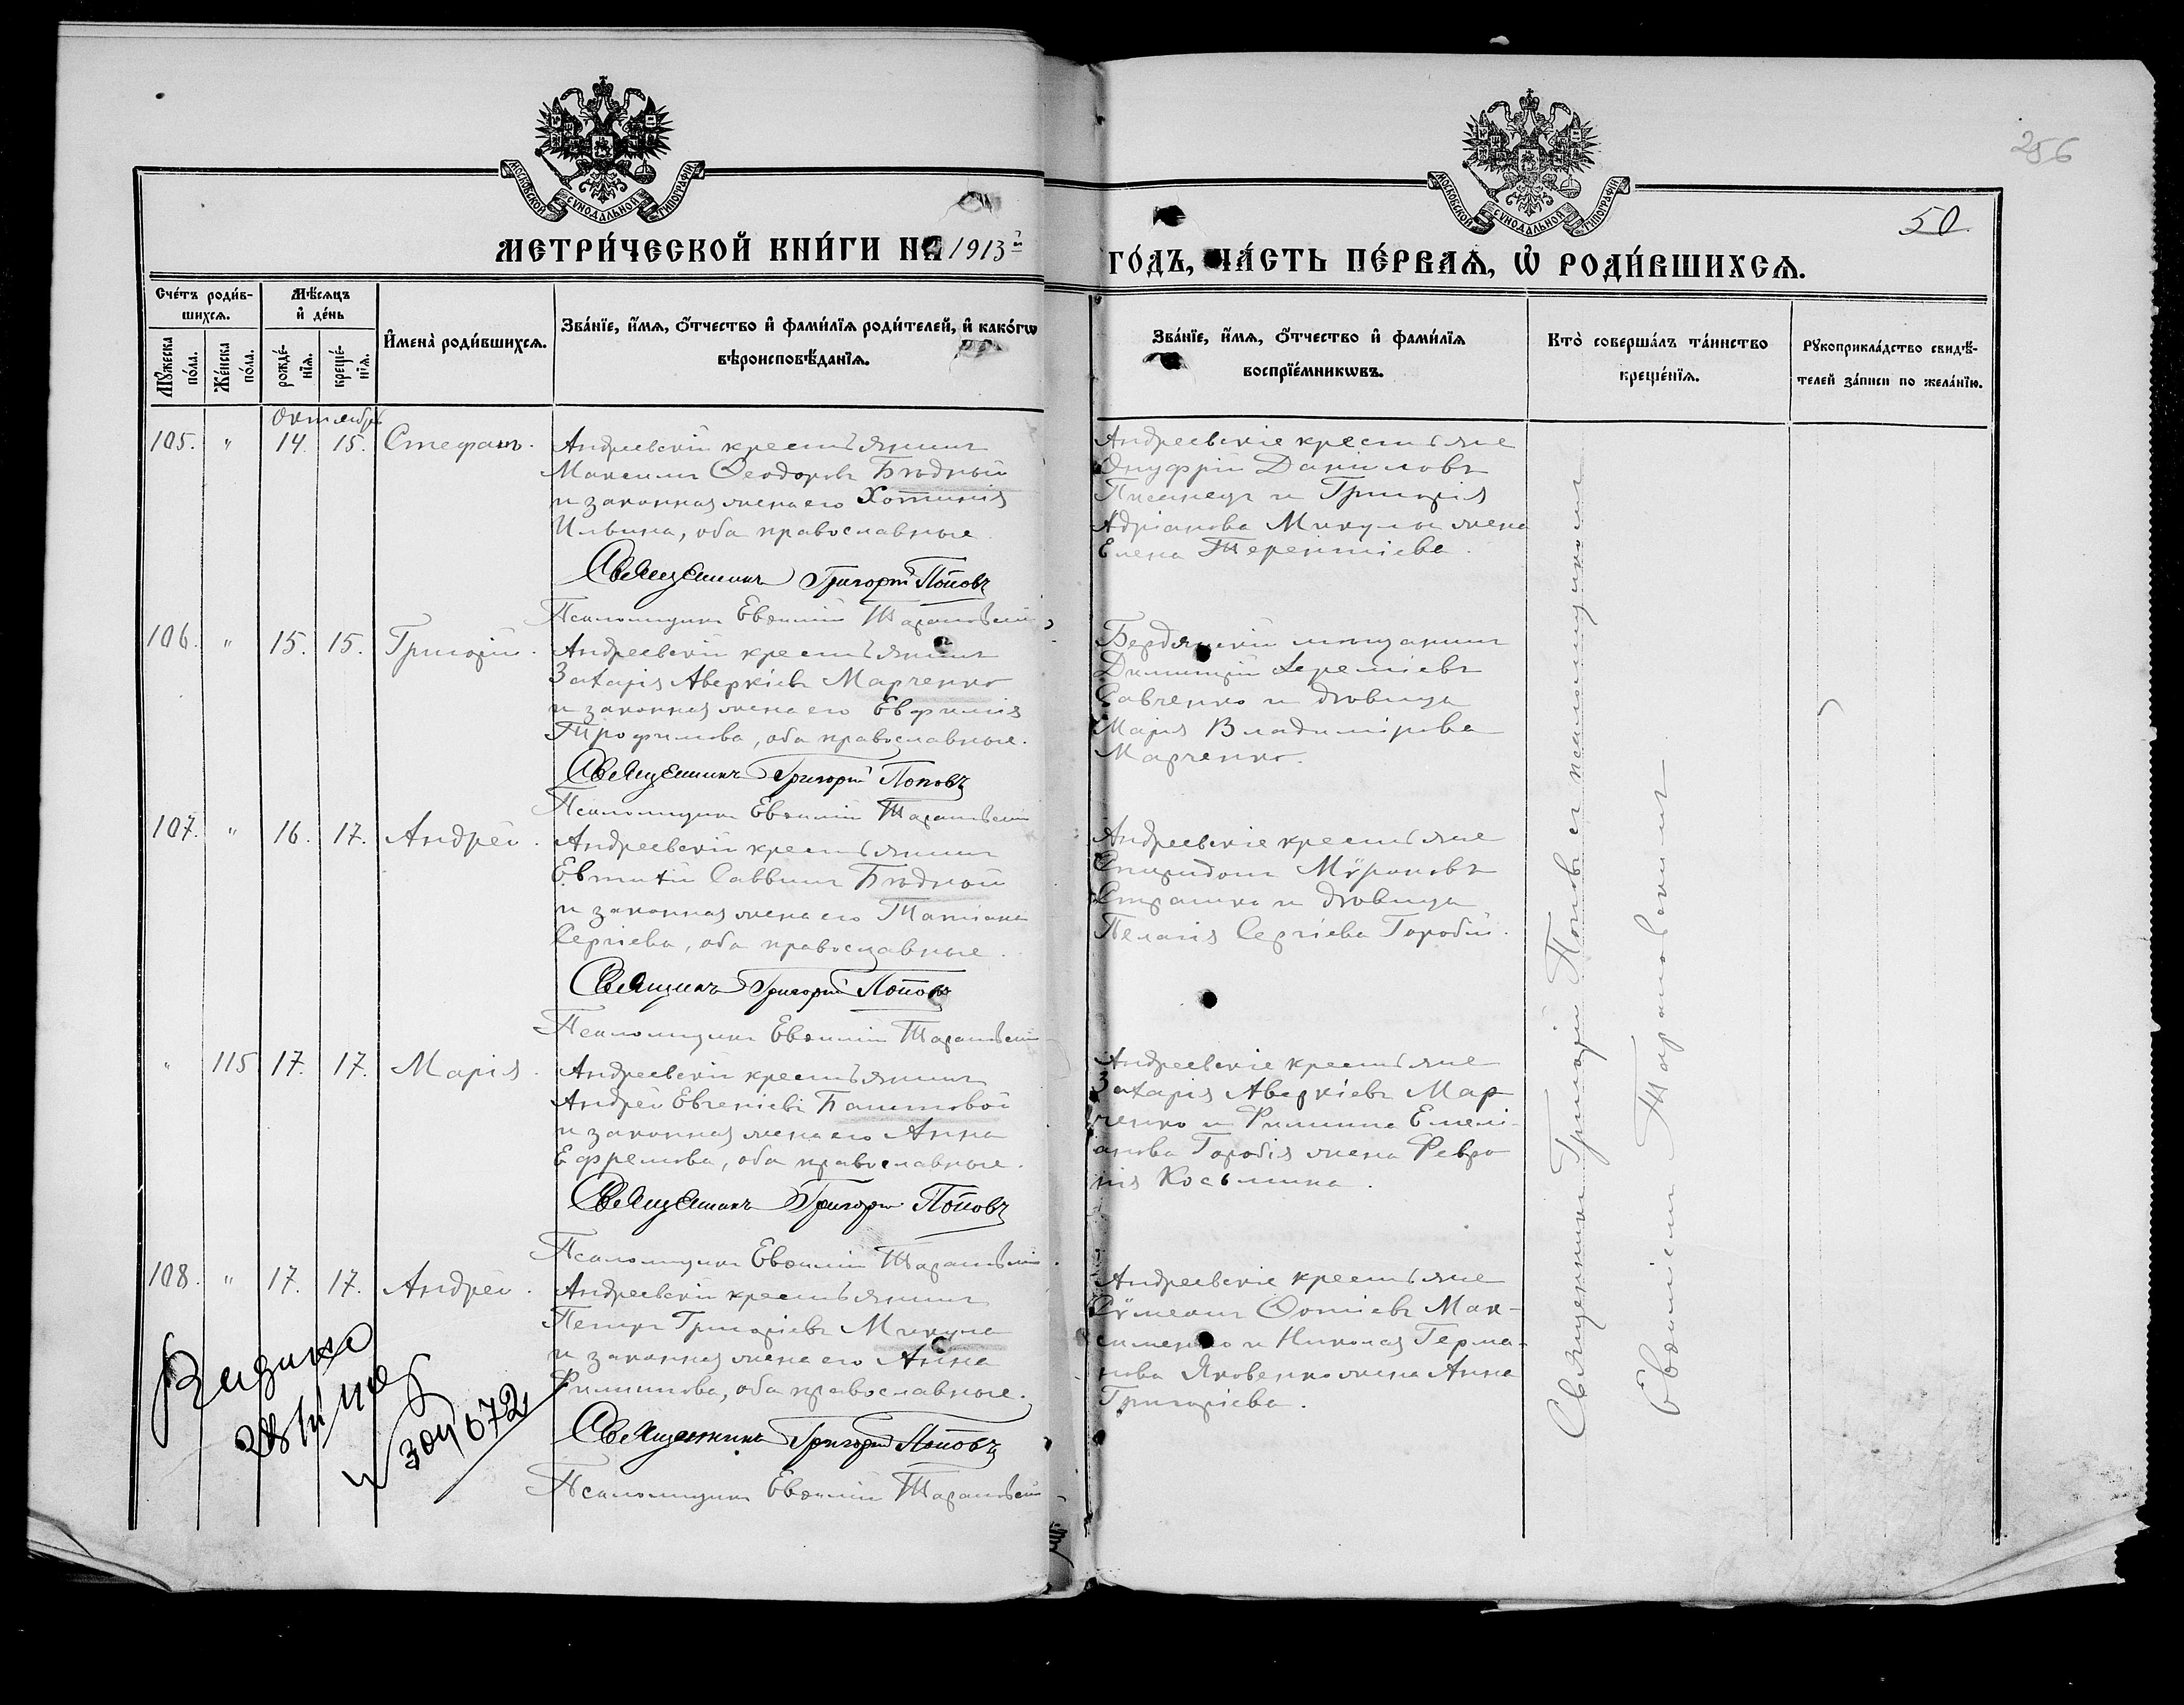 256
МОСКОВСКОЙ СѴНОДАЛЬНОЙ ТИПОГРАФІИ
МОСКОВСКОЙ СѴНОДАЛЬНОЙ ТИПОГРАФІИ
50.
МЕТРИ́ЧЕСКОЙ КНИ́ГИ НА 1913й
ГО́ДЪ, ЧА́СТЬ ПЕ́РВАѦ, Ѡ҆ РОДИ́ВШИХСѦ.
Сче́тъ роди́в-
шихсѧ.
Мꙋ́жеска по́ла.
Же́нска по́ла.
Мѣ́сѧцъ
и҆ де́нь
рожде́-
нїѧ.
креще́-
нїѧ.
И҆мена̀ роди́вшихсѧ.
Зва́нїе, и҆́мѧ, ѻ҆́тчество и҆ фами́лїѧ роди́телей, и҆ како́гѡ
вѣроисповѣ́данїѧ.
Зва́нїе, и҆́мѧ, ѻ҆́тчество и҆ фами́лїѧ
воспрїе́мникѡвъ.
Кто̀ соверша́лъ та́инство
креще́нїѧ.
Рꙋкоприкла́дство свидѣ́-
телей за́писи по жела́нїю.
Октябрь
105. " 14. 15. Стефанъ.
Андреевскій крестьянинъ
Максимъ Ѳеодоровъ Бѣдный
и законная жена его Хотинія
Ильина, оба православные
Священникъ Григорій Поповъ
Псаломщикъ Евѳимій Тарановскій
Андреевскіе крестьяне
Онуфрій Даніиловъ
и Григорія
Адріанова Микулы жена
Елена Терентіева.
106. " 15. 15. Григорій.
Андреевскій крестьянинъ
Захарія Аверкіевъ Марченко
и законная жена его Евфимія
Трофимова, оба православные.
Священникъ Григорій Поповъ
Псаломщикъ Евѳимій Тарановскій
Бердянскій мѣщанинъ
Димитрій Іереміевъ
Савченко и дѣвица
Марія Владимірова
Марченко.
107. " 16. 17. Андрей.
Андреевскій крестьянинъ
Евтихій Саввинъ Бѣдной
и законная жена его Татіана
Сергіева, оба православные.
Священникъ Григорій Поповъ
Псаломщикъ Евѳимій Тарановскій
Андреевскіе крестьяне
Спиридонъ Мѵроновъ
Страшко и дѣвица
Пелагія Сергіева Горобій.
" 115 17. 17. Марія.
Андреевскій крестьянинъ
Андрей Евгеніевъ Баштовой
и законная жена его Анна
Ефремова, оба православные.
Священникъ Григорій Поповъ
Псаломщикъ Евѳимій Тарановскій.
Андреевскіе крестьяне
Захарія Аверкіевъ Мар
ченко и Филиппа Емелі-
анова Горобія жена Февро
нія Косьмина.
108. " 17. 17. Андрей.
Андреевскій крестьянинъ
Петръ Григоріевъ Микула
и законная жена его Анна
Филиппова, оба православные.
Священникъ Григорій Поповъ
Псаломщикъ Евѳимій Тарановскій
Андреевскіе крестьяне
Сѵмеонъ Ѳотіевъ Мак-
сименко и Николая Герма-
нова Яковенко жена Анна
Григоріева.
Священникъ Григорій Поповъ съ псаломщикомъ
Евѳиміемъ Тарановскимъ
672